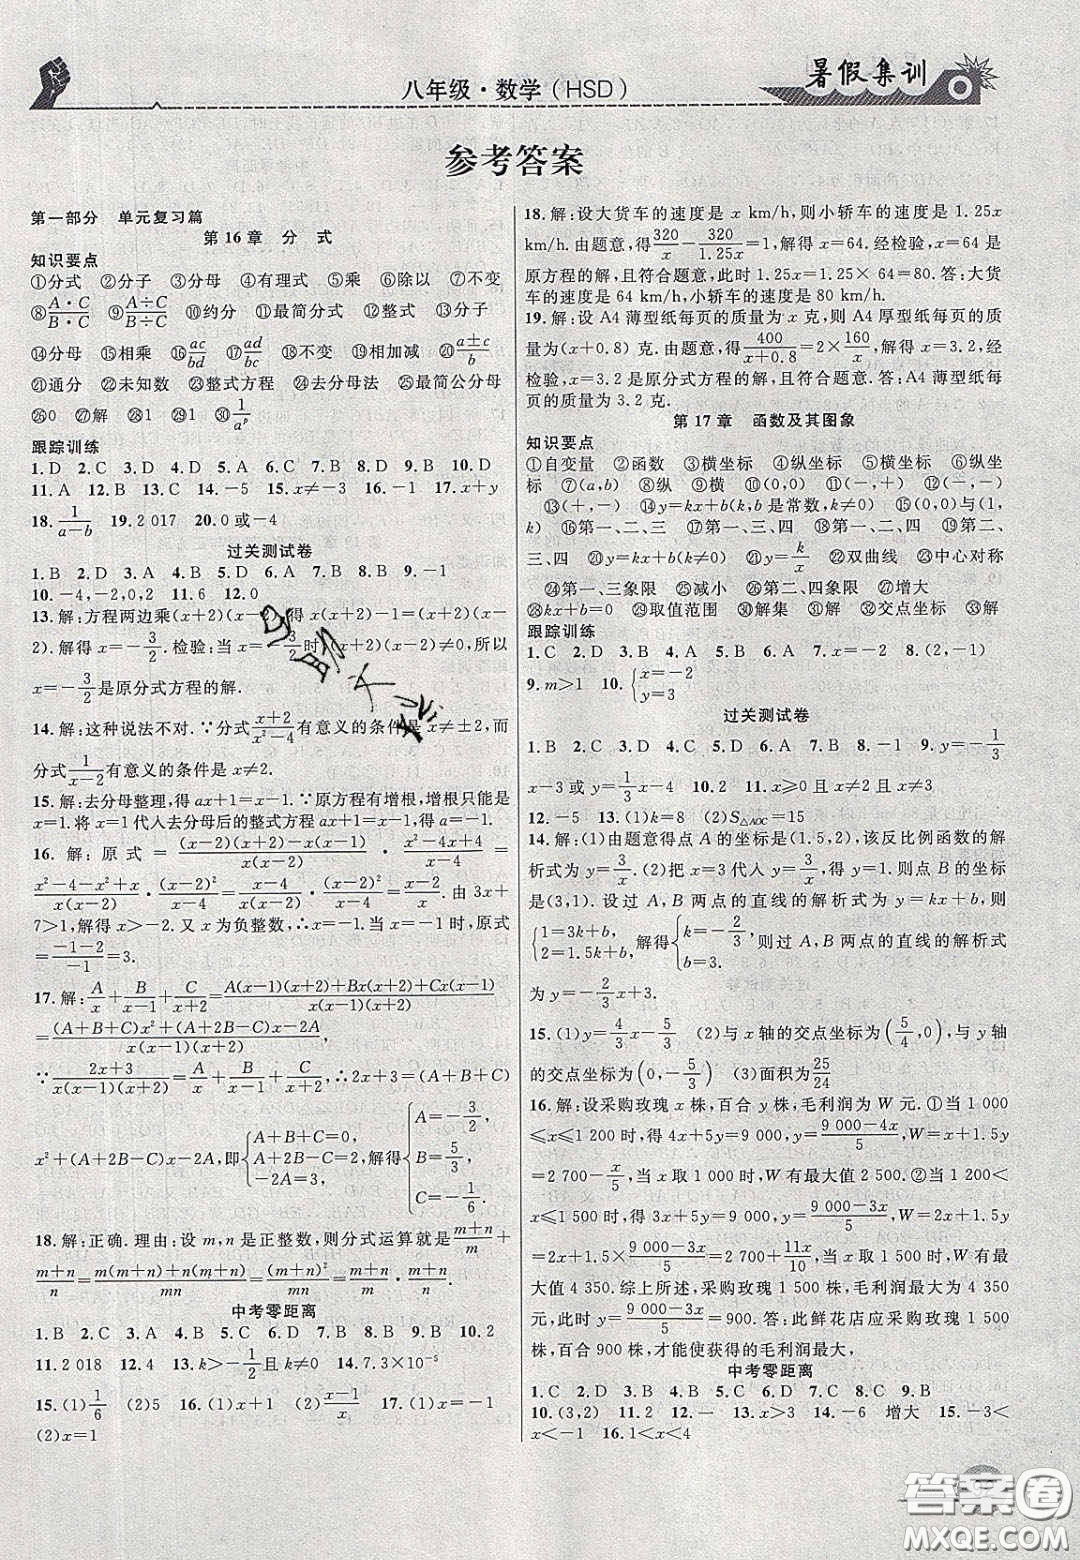 八年级·数学(HSD)
暑假集训
参考答案
第一部分 单元复习篇
第16章 分 式
知识要点
①分式 ②分子 ③分母 ④有理式 ⑤乘 ⑥除以 ⑦不变
⑧A·C/B·C ⑨A÷C/B÷C ⑩约分 ⑪最简分式 ⑫整式 ⑬分子
⑭分母 ⑮相乘 ⑯ac/bd ⑰ad/bc ⑱不变 ⑲相加减 ⑳a±c/b
㉑通分 ㉒未知数 ㉓整式方程 ㉔去分母法 ㉕最简公分母
㉖0 ㉗解 ㉘1 ㉙1 ㉚1/aᵖ
跟踪训练
1.D 2.C 3.D 4.D 5.A 6.C 7.B 8.B 9.B 10.D
11.A 12.B 13.C 14.-5 15.x≠-3 16.-1 17.x+y
18.1/(a-b) 19.2 017 20.0或-4
过关测试卷
1.B 2.D 3.D 4.A 5.D 6.A 7.B 8.B 9.-1
10.-4,-2,0,2 11.6 12.0
13.解:方程两边乘(x+2)(x-2),得 x(x+2)-1=(x+2)(x-
2).解得 x=-3/2.检验:当 x=-3/2时,(x+2)(x-2)≠0,所以
x=-3/2是原分式方程的解.
14.解:这种说法不对.∵分式(x+2)/(x²-4)有意义的条件是 x≠±2,而
分式1/(x-2)有意义的条件是 x≠2.
15.解:去分母整理,得 ax+1=0.∵原方程有增根,增根只能是
x=1.将 x=1 代入去分母后的整式方程 ax+1=0,得 a=-1.
16.解:原式=[(x-2)(x+2)-x(x-1)]/[x(x-2)]·(x²-4x+4)/(x-4)=
(x²-4-x²+x)/[x(x-2)]·(x-2)²/(x-4)=(x-4)/[x(x-2)]·(x-2)²/(x-4)=(x-2)/x.由 3x+
7>1,解得 x>-2.又 x 为负整数,∴x=-1.当 x=-1 时,原式=
(-1-2)/(-1)=3.
17.解:A/x+B/(x-1)+C/(x+2)=[A(x-1)(x+2)+Bx(x+2)+Cx(x-1)]/[x(x-1)(x+2)]
=[(A+B+C)x²+(A+2B-C)x-2A]/[x(x-1)(x+2)],
∵(2x+3)/[x(x-1)(x+2)]=A/x+B/(x-1)+C/(x+2),∴2x+3=(A+B+C)
x²+(A+2B-C)x-2A,即{A+B+C=0, A+2B-C=2, -2A=3, 解得{A=-3/2, B=5/3, C=-1/6.
18.解:正确.理由:设 m,n 是正整数,则分式运算就是(m+n)/m+
(m+n)/n=(m+n)²/mn=(m+n)/m·(m+n)/n.
中考零距离
1.B 2.C 3.A 4.B 5.C 6.D 7.B 8.B 9.B 10.2
11.2 018 12.4 13.k>-1/2且 k≠0 14.7.3×10⁻⁵
15.(1)1/6 (2)x+1 16.(1)x=1 (2)(x-1)/x 17.(1)x=4
(2)x=1
18.解:设大货车的速度是 x km/h,则小轿车的速度是 1.25x
km/h.由题意,得320/x-320/1.25x=1,解得 x=64.经检验,x=64 是
原方程的解,且符合题意,此时 1.25x=1.25×64=80.答:大货
车的速度是 64 km/h,小轿车的速度是 80 km/h.
19.解:设 A4 薄型纸每页的质量为 x 克,则 A4 厚型纸每页的
质量为(x+0.8) 克.由题意,得400/(x+0.8)=2×160/x,解得 x=3.2,经
检验,x=3.2 是原分式方程的解,且符合题意.答:A4 薄型纸每
页的质量为 3.2 克.
第17章 函数及其图象
知识要点
①自变量 ②函数 ③横坐标 ④纵坐标 ⑤横坐标 ⑥纵坐
标 ⑦(a,b) ⑧纵 ⑨横 ⑩(0,0) ⑪(+,+) ⑫(-,-)
⑬(+,-) ⑭y=kx+b(k,b 是常数,k≠0) ⑮(0,0)与(1,
k) ⑯第一、二、三 ⑰第一、三、四 ⑱第一、二、四 ⑲第二、
三、四 ⑳y=kx+b(k≠0) ㉑y=k/x ㉒双曲线 ㉓中心对称
㉔第一、三象限 ㉕减小 ㉖第二、四象限 ㉗增大
㉘kx+b=0 ㉙取值范围 ㉚解集 ㉛解 ㉜交点坐标 ㉝解
跟踪训练
1.C 2.D 3.B 4.A 5.B 6.A 7.x=-2 8.(2,-1)
9.m>1 10.{x=-2 y=3
过关测试卷
1.B 2.C 3.C 4.D 5.D 6.A 7.B 8.-1 9.y=-1/3
x-3 或 y=1/3x-4 10.2 11.x≥0 且 x≠3 且 x≠2
12.-5 13.(1)k=8 (2)S△AOC=15
14.解:(1)由题意得点 A 的坐标是(1.5,2),该反比例函数的解
析式为 y=3/x.(2)把 x=3 代入 y=3/x,得 y=1.则点 B 的坐标
是(3,1).设过 A,B 两点的直线的解析式为 y=kx+b,则
{1=3k+b, 2=1.5k+b, 解得{k=-2/3, b=3. 则过 A,B 两点的直线的解析式
为 y=-2/3x+3.
15.(1)y=4/3x-5/3 (2)与 x 轴的交点坐标为(5/4,0),与 y轴
的交点坐标为(0,-5/3) (3)面积为25/24
16.解:设采购玫瑰 x 株,百合 y 株,毛利润为 W 元.①当 1 000
≤x≤1 200 时,得 4x+5y=9 000,y=(9 000-4x)/5,W=x+1.5y
=2 700-x/5,当 x 取 1 000 时,W 有最大值 2 500.②当 1 200<
x≤1 500 时,得 3x+5y=9 000,y=(9 000-3x)/5,W=2x+
1.5y=2x+1.5×(9 000-3x)/5=2 700+11x/10,当 x 取 1 500 时,W 有最
大值 4 350.综上所述,采购玫瑰 1 500 株,毛利润最大为 4 350
元,此时 y=(9 000-3x)/5=900.答:此鲜花店应采购玫瑰 1 500
株,百合 900 株,才能使获得的毛利润最大,
中考零距离
1.C 2.D 3.B 4.C 5.C 6.D 7.B 8.C 9.B
10.(3,2) 11.2 12.一 13.x>3 14.-6 增大 15.-3<
x<-1 16.1<x<4
答案卷
MXQE.COM